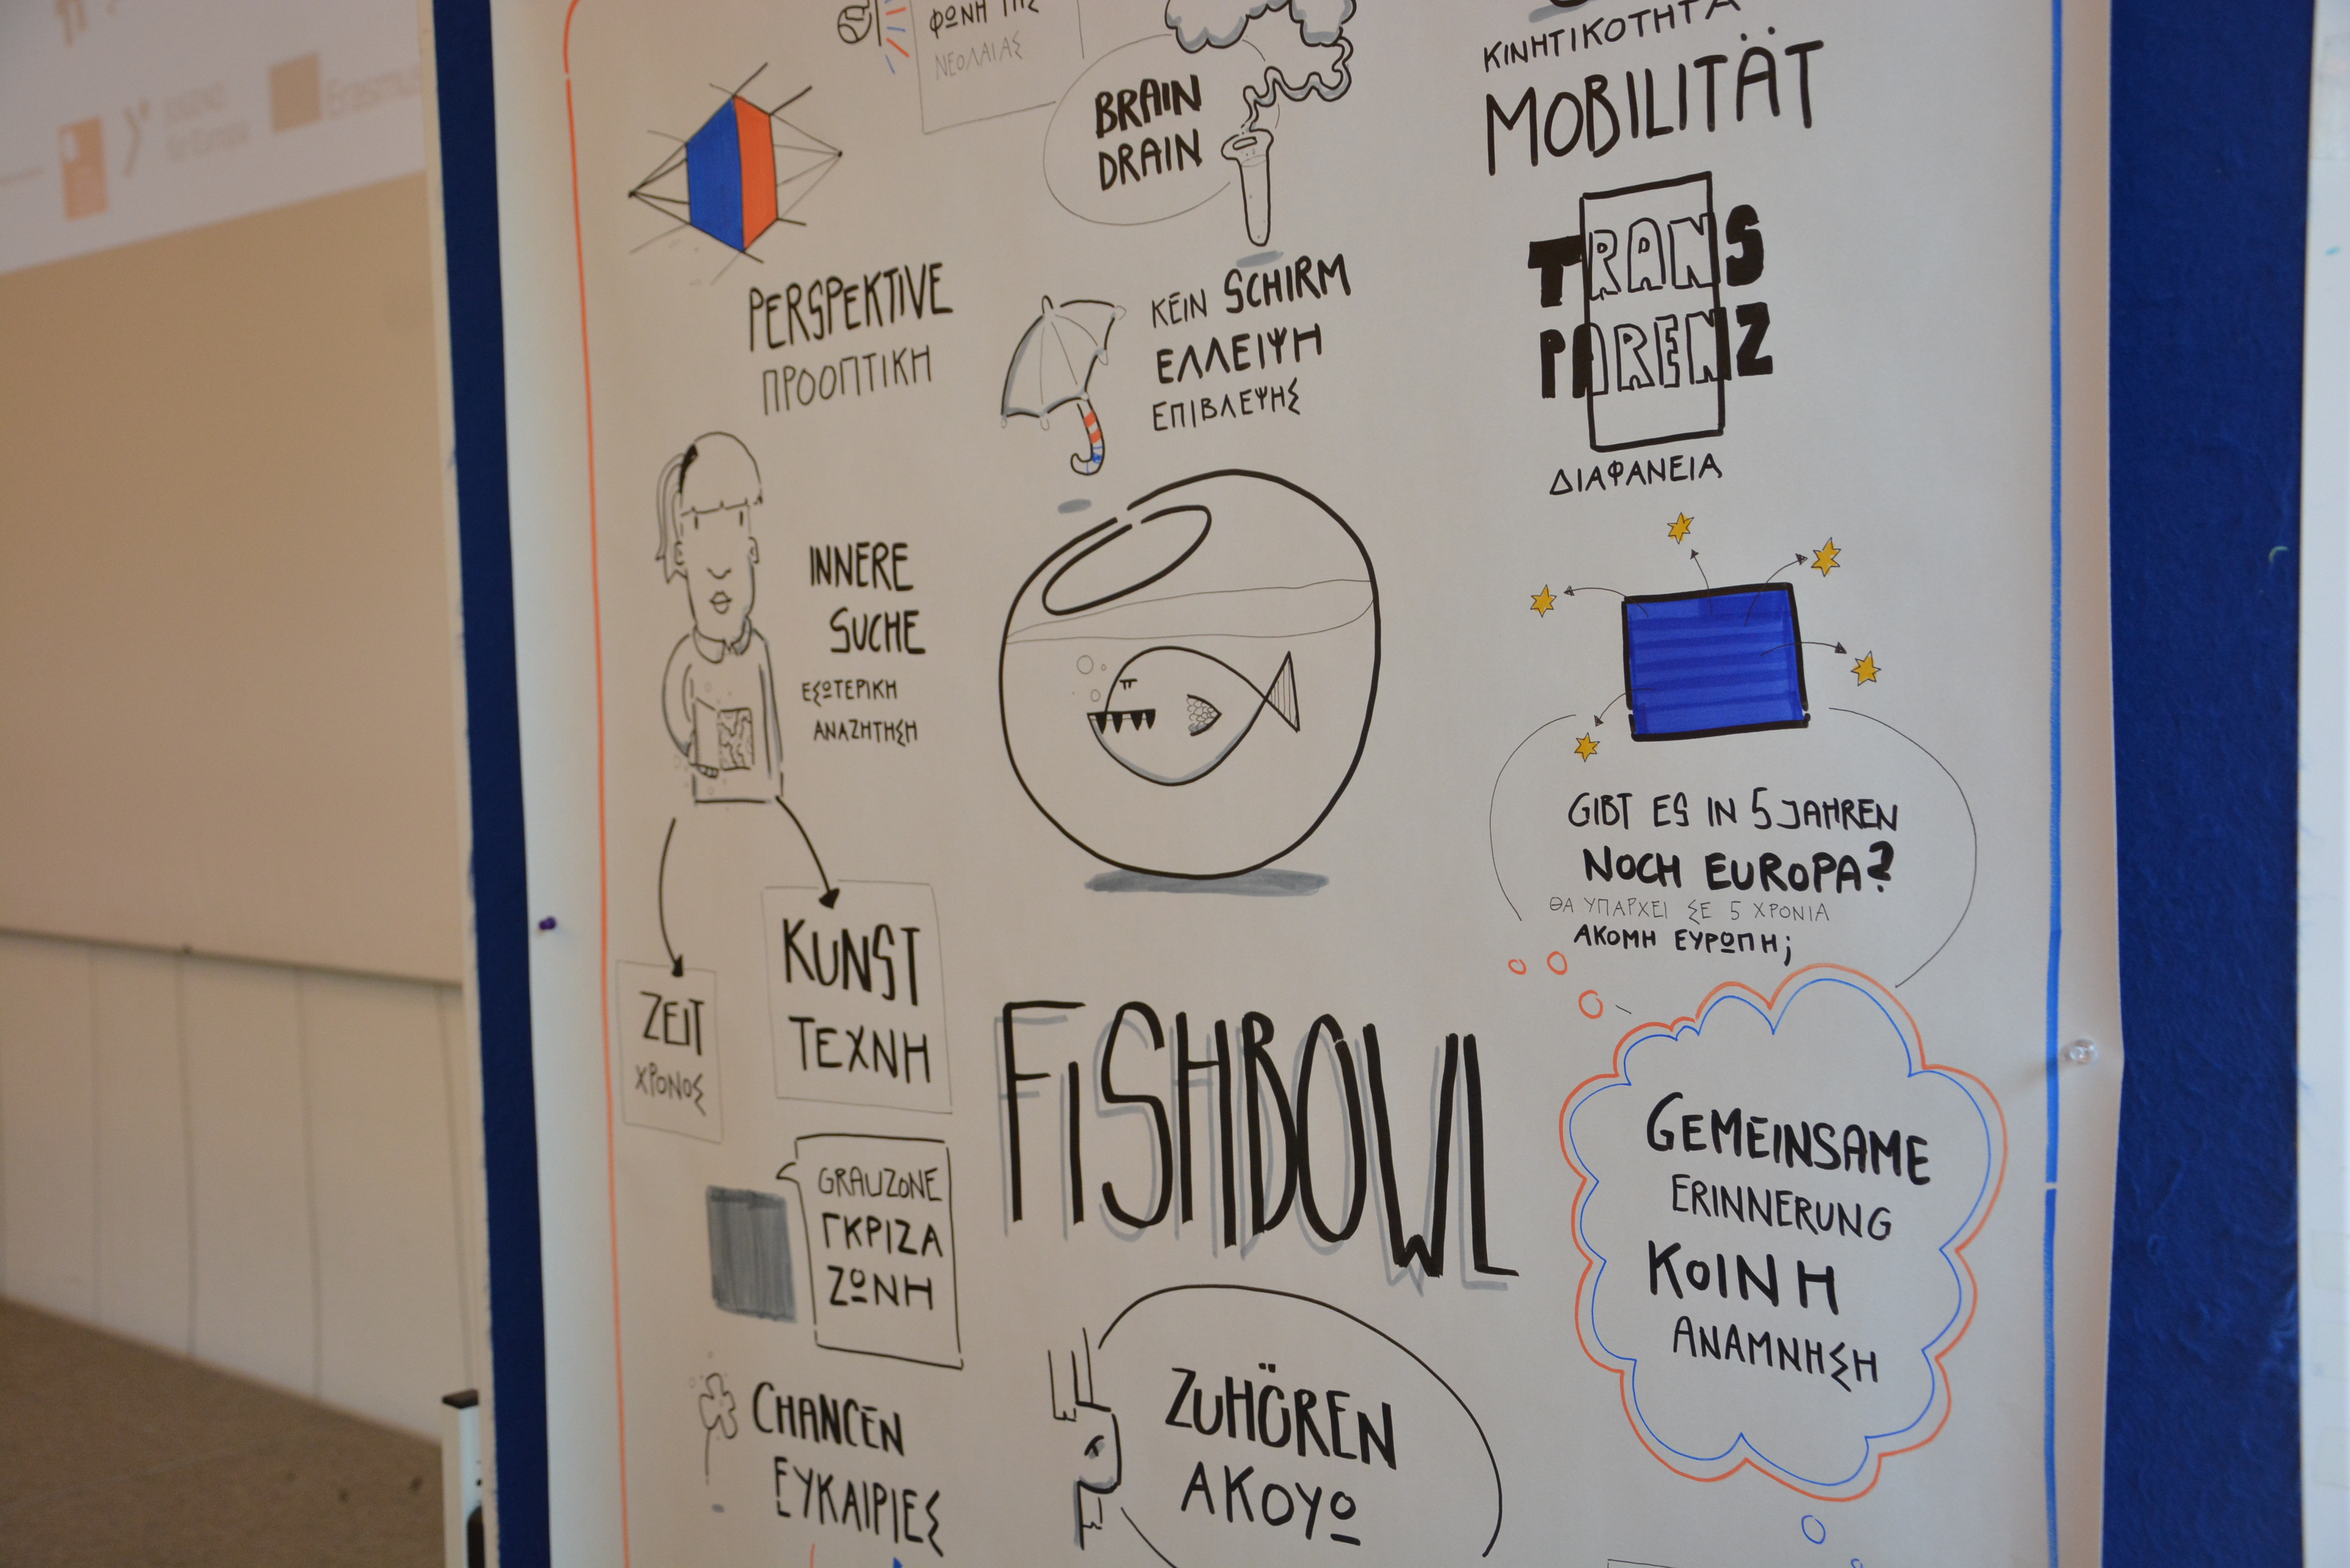 JUGEND
für Europa
Erasmus
ΦΩΝΗ ΤΗΣ
ΝΕΟΛΑΙΑΣ
BRAIN
DRAIN
ΚΙΝΗΤΙΚΟΤΗΤΑ
MOBILITÄT
PERSPEKTIVE
ΠΡΟΟΠΤΙΚΗ
KEIN SCHIRM
ΕΛΛΕΙΨΗ
ΕΠΙΒΛΕΨΗΣ
TRANS
PARENZ
ΔΙΑΦΑΝΕΙΑ
INNERE
SUCHE
ΕΣΩΤΕΡΙΚΗ
ΑΝΑΖΗΤΗΣΗ
GIBT ES IN 5 JAHREN
NOCH EUROPA?
ΘΑ ΥΠΑΡΧΕΙ ΣΕ 5 ΧΡΟΝΙΑ
ΑΚΟΜΗ ΕΥΡΩΠΗ;
ZEIT
ΧΡΟΝΟΣ
KUNST
ΤΕΧΝΗ
FISHBOWL
GEMEINSAME
ERINNERUNG
ΚΟΙΝΗ
ΑΝΑΜΝΗΣΗ
GRAUZONE
ΓΚΡΙΖΑ
ΖΩΝΗ
CHANCEN
ΕΥΚΑΙΡΙΕΣ
ZUHÖREN
ΑΚΟΥΩ